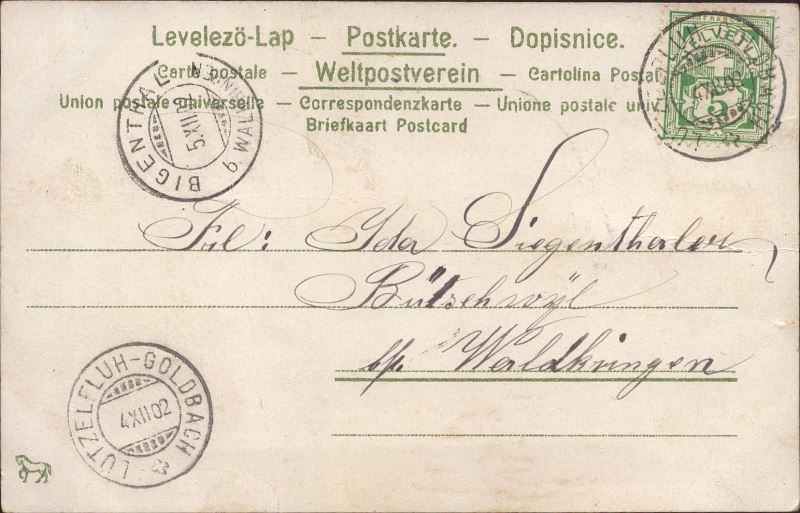 Levelezö-Lap – Postkarte. – Dopisnice.
Carte postale – Weltpostverein – Cartolina Postal
Union postale universelle – Correspondenzkarte – Unione postale univ
Briefkaart Postcard
BIGENTHAL
5 XII 02
HELVETIA
5
4 XII 02
Frl: Ida Siegenthaler
Bütschwyl
bp. Waldkringen
LÜTZELFLUH-GOLDBACH
4 XII 02